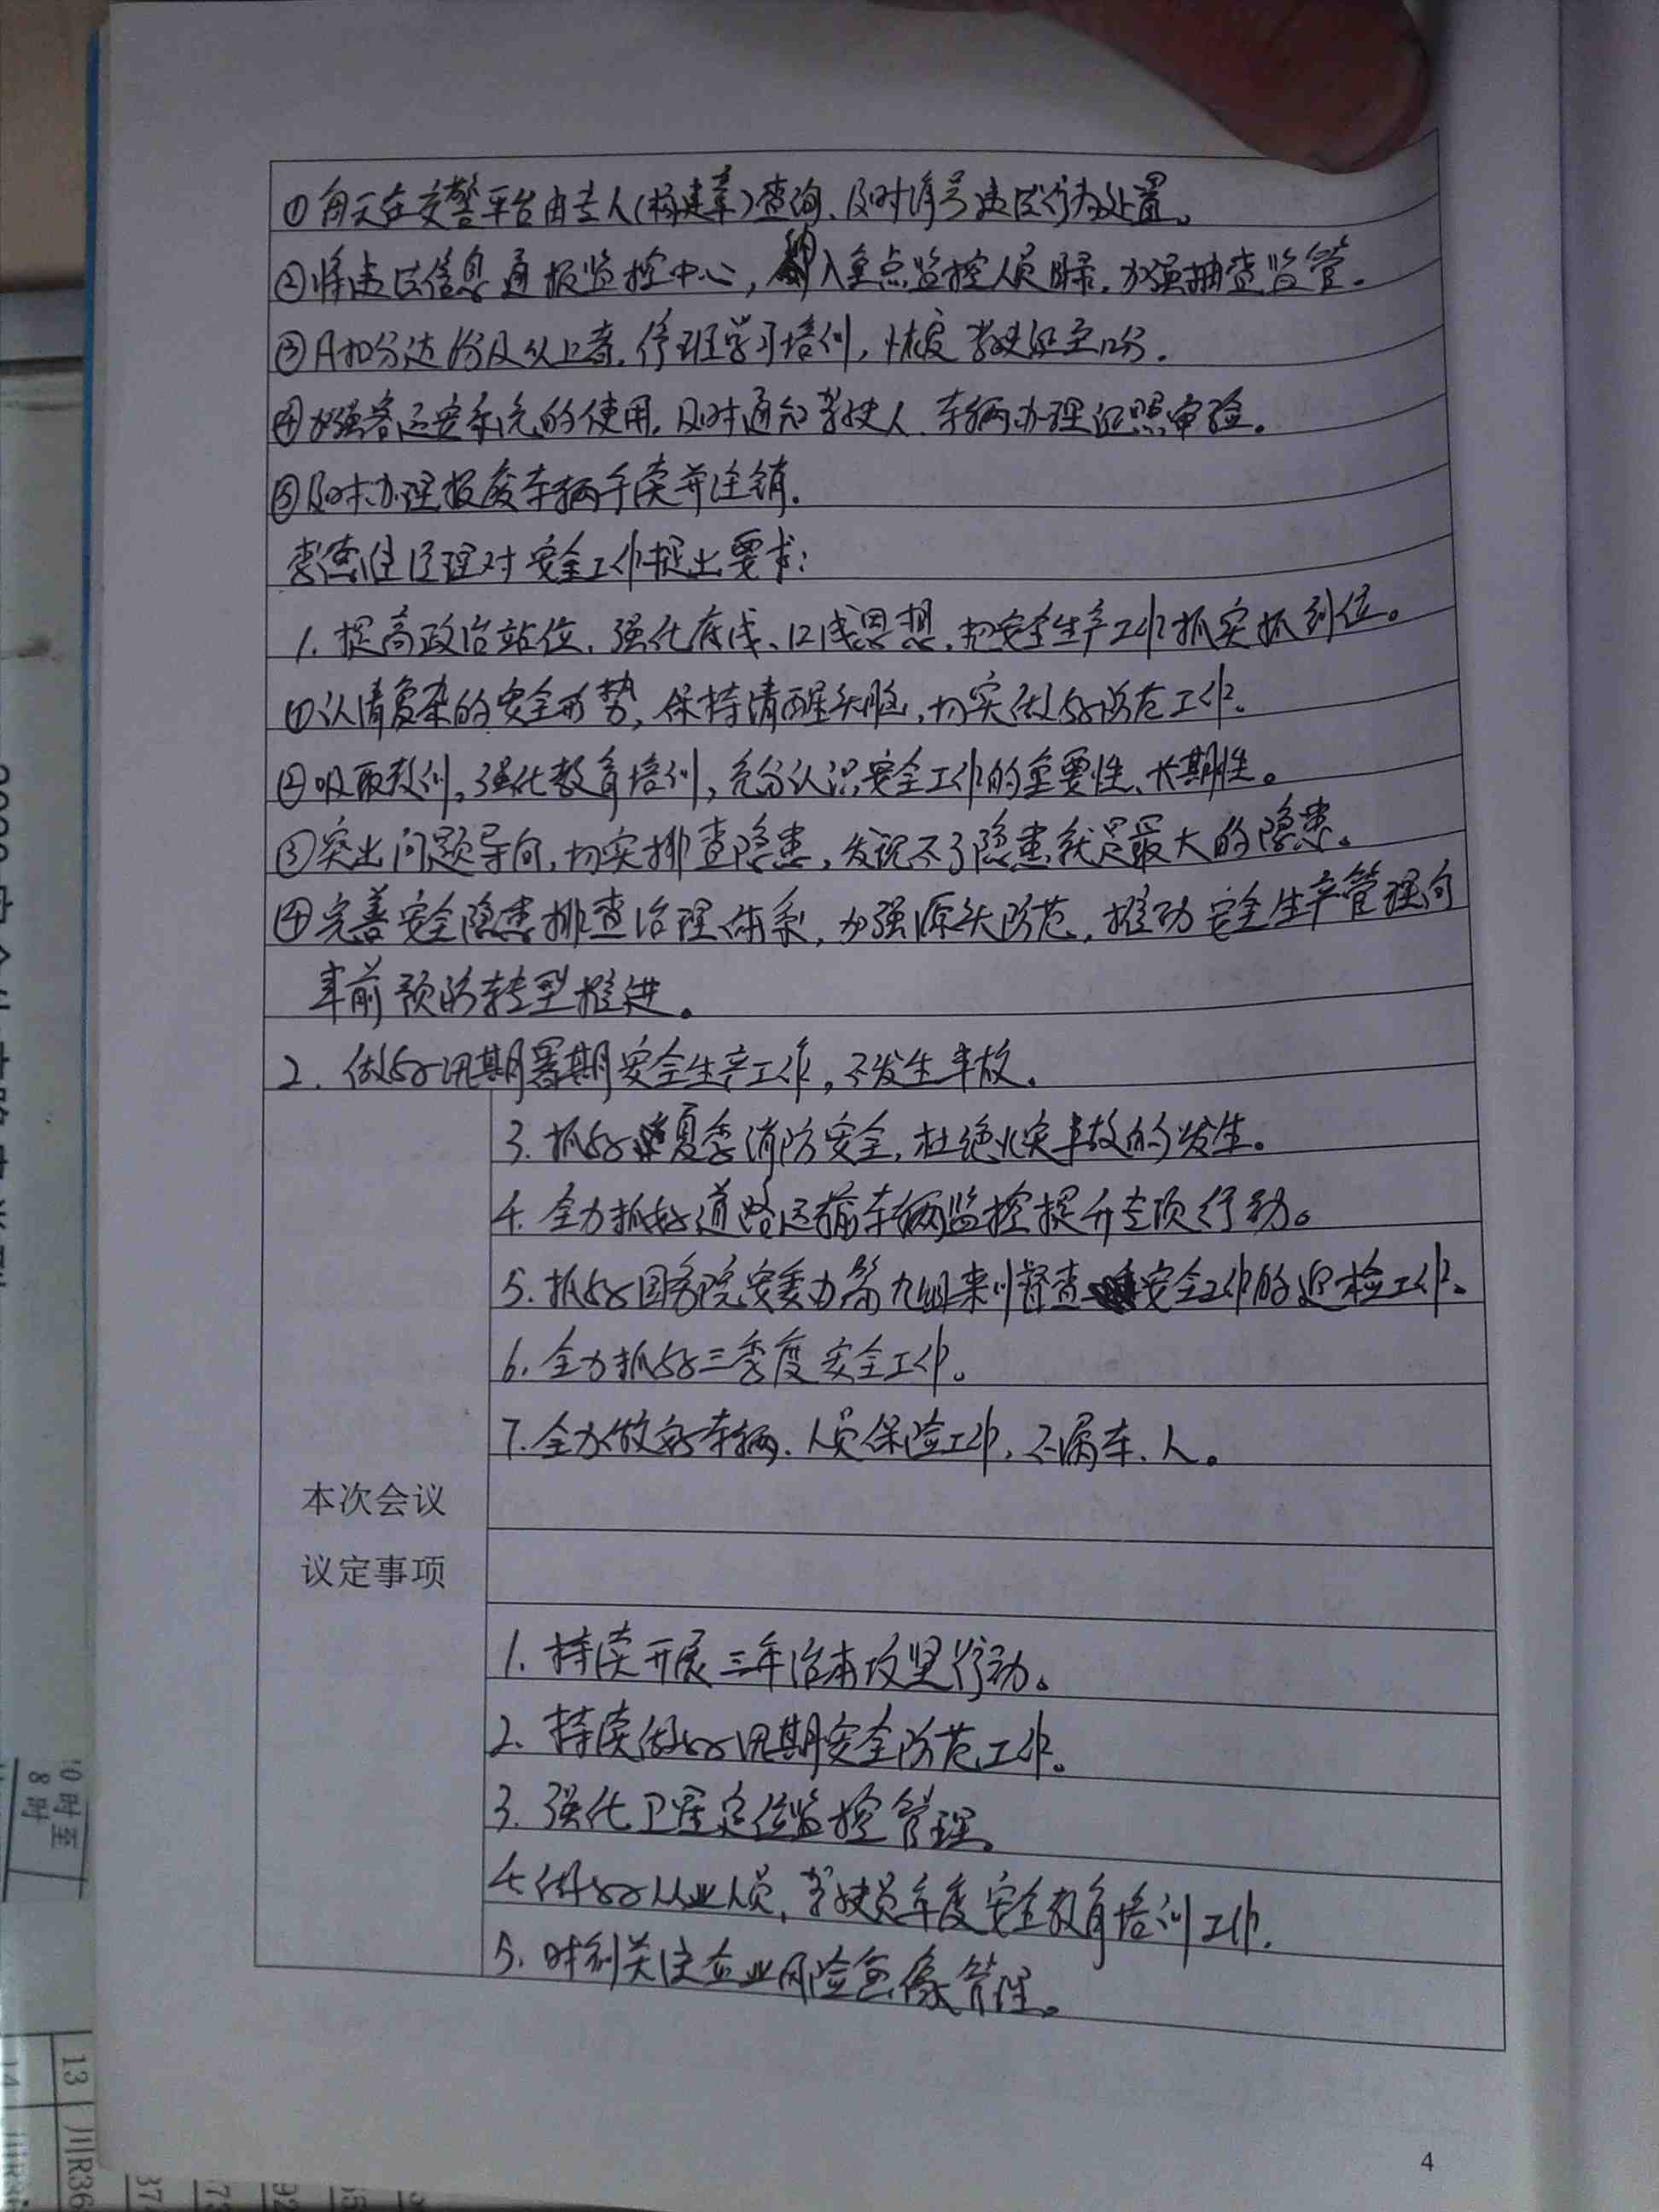 ①每天在交警平台由专人(杨建章)查询、及时清号违法行为处置。
②将违法信息通报监控中心，纳入重点监控人员目录，加强抽查监管。
③月扣分达分及以上者，停班学习培训，恢复驾驶证至12分。
④加强客运安系统的使用，及时通知驾驶人、车辆办理证照审验。
⑤及时办理报废车辆手续并注销。
经理对安全工作提出要求：
1、提高政治站位，强化底线、红线思想，把安全生产工作抓实抓到位。
①认清复杂的安全形势，保持清醒头脑，切实做好防范工作。
②吸取教训，强化教育培训，充分认识安全工作的重要性、长期性。
③突出问题导向，切实排查隐患，发现不了隐患就是最大的隐患。
④完善安全隐患排查治理体系，加强源头防范，推动安全生产管理向
事前预防转型推进。
2．做好汛期暑期安全生产工作，不发生事故。
3．抓好夏季消防安全，杜绝火灾事故的发生。
4．全力抓好道路运输车辆监控提升专项行动。
5．抓好国务院安委办第九组来川督查安全工作的迎检工作。
6．全力抓好三季度安全工作。
7．全力做好车辆、人员保险工作，不漏车、人。
本次会议
议定事项
1．持续开展三年治本攻坚行动。
2．持续做好汛期安全防范工作。
3．强化卫星定位监控管理。
4．做好从业人员，驾驶员年度安全教育培训工作．
5．时刻关注企业风险画像管理。
10时至
8时
13
川R36
4